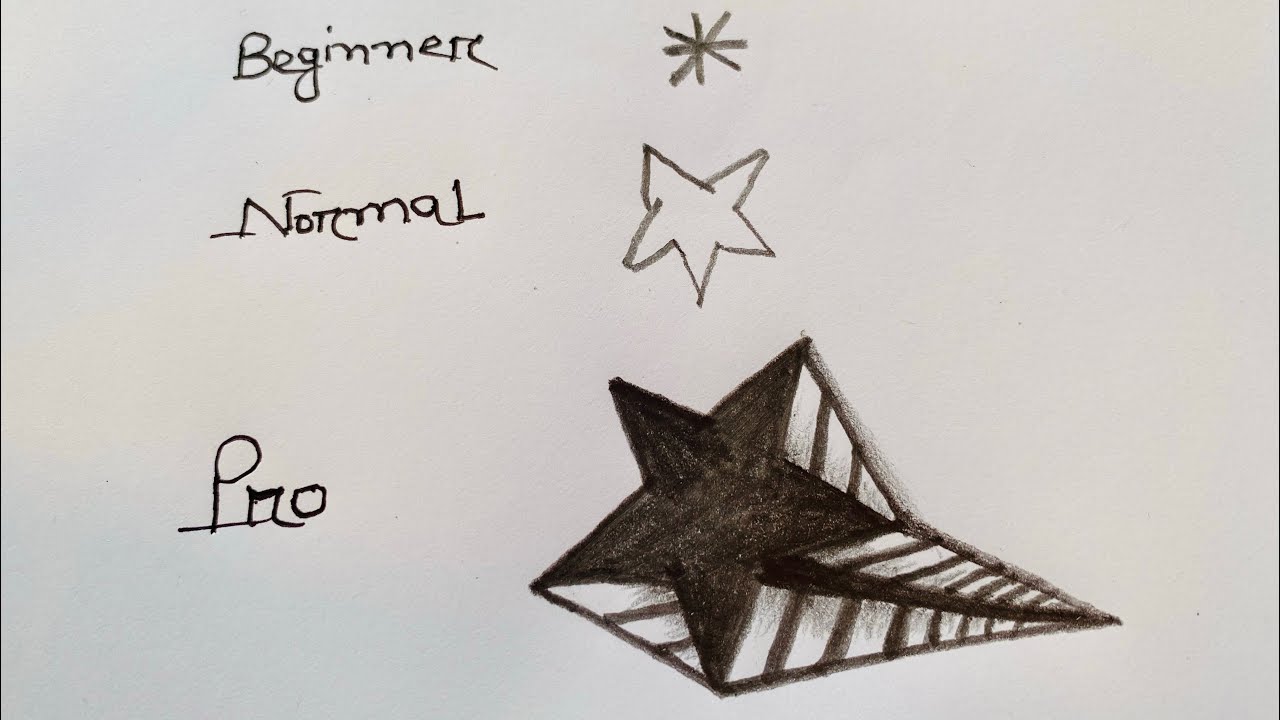 Beginner
Normal
Pro